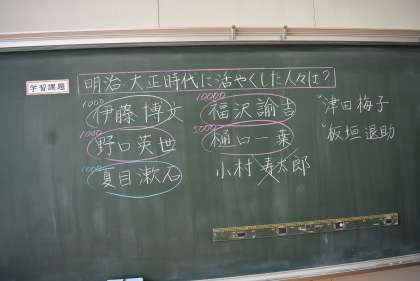 学習課題
明治 大正時代に活やくした人々は?
1000
伊藤 博文
10000
福沢諭吉
津田梅子
1000
野口英世
5000
樋口一葉
板垣退助
1000
夏目漱石
小村寿太郎